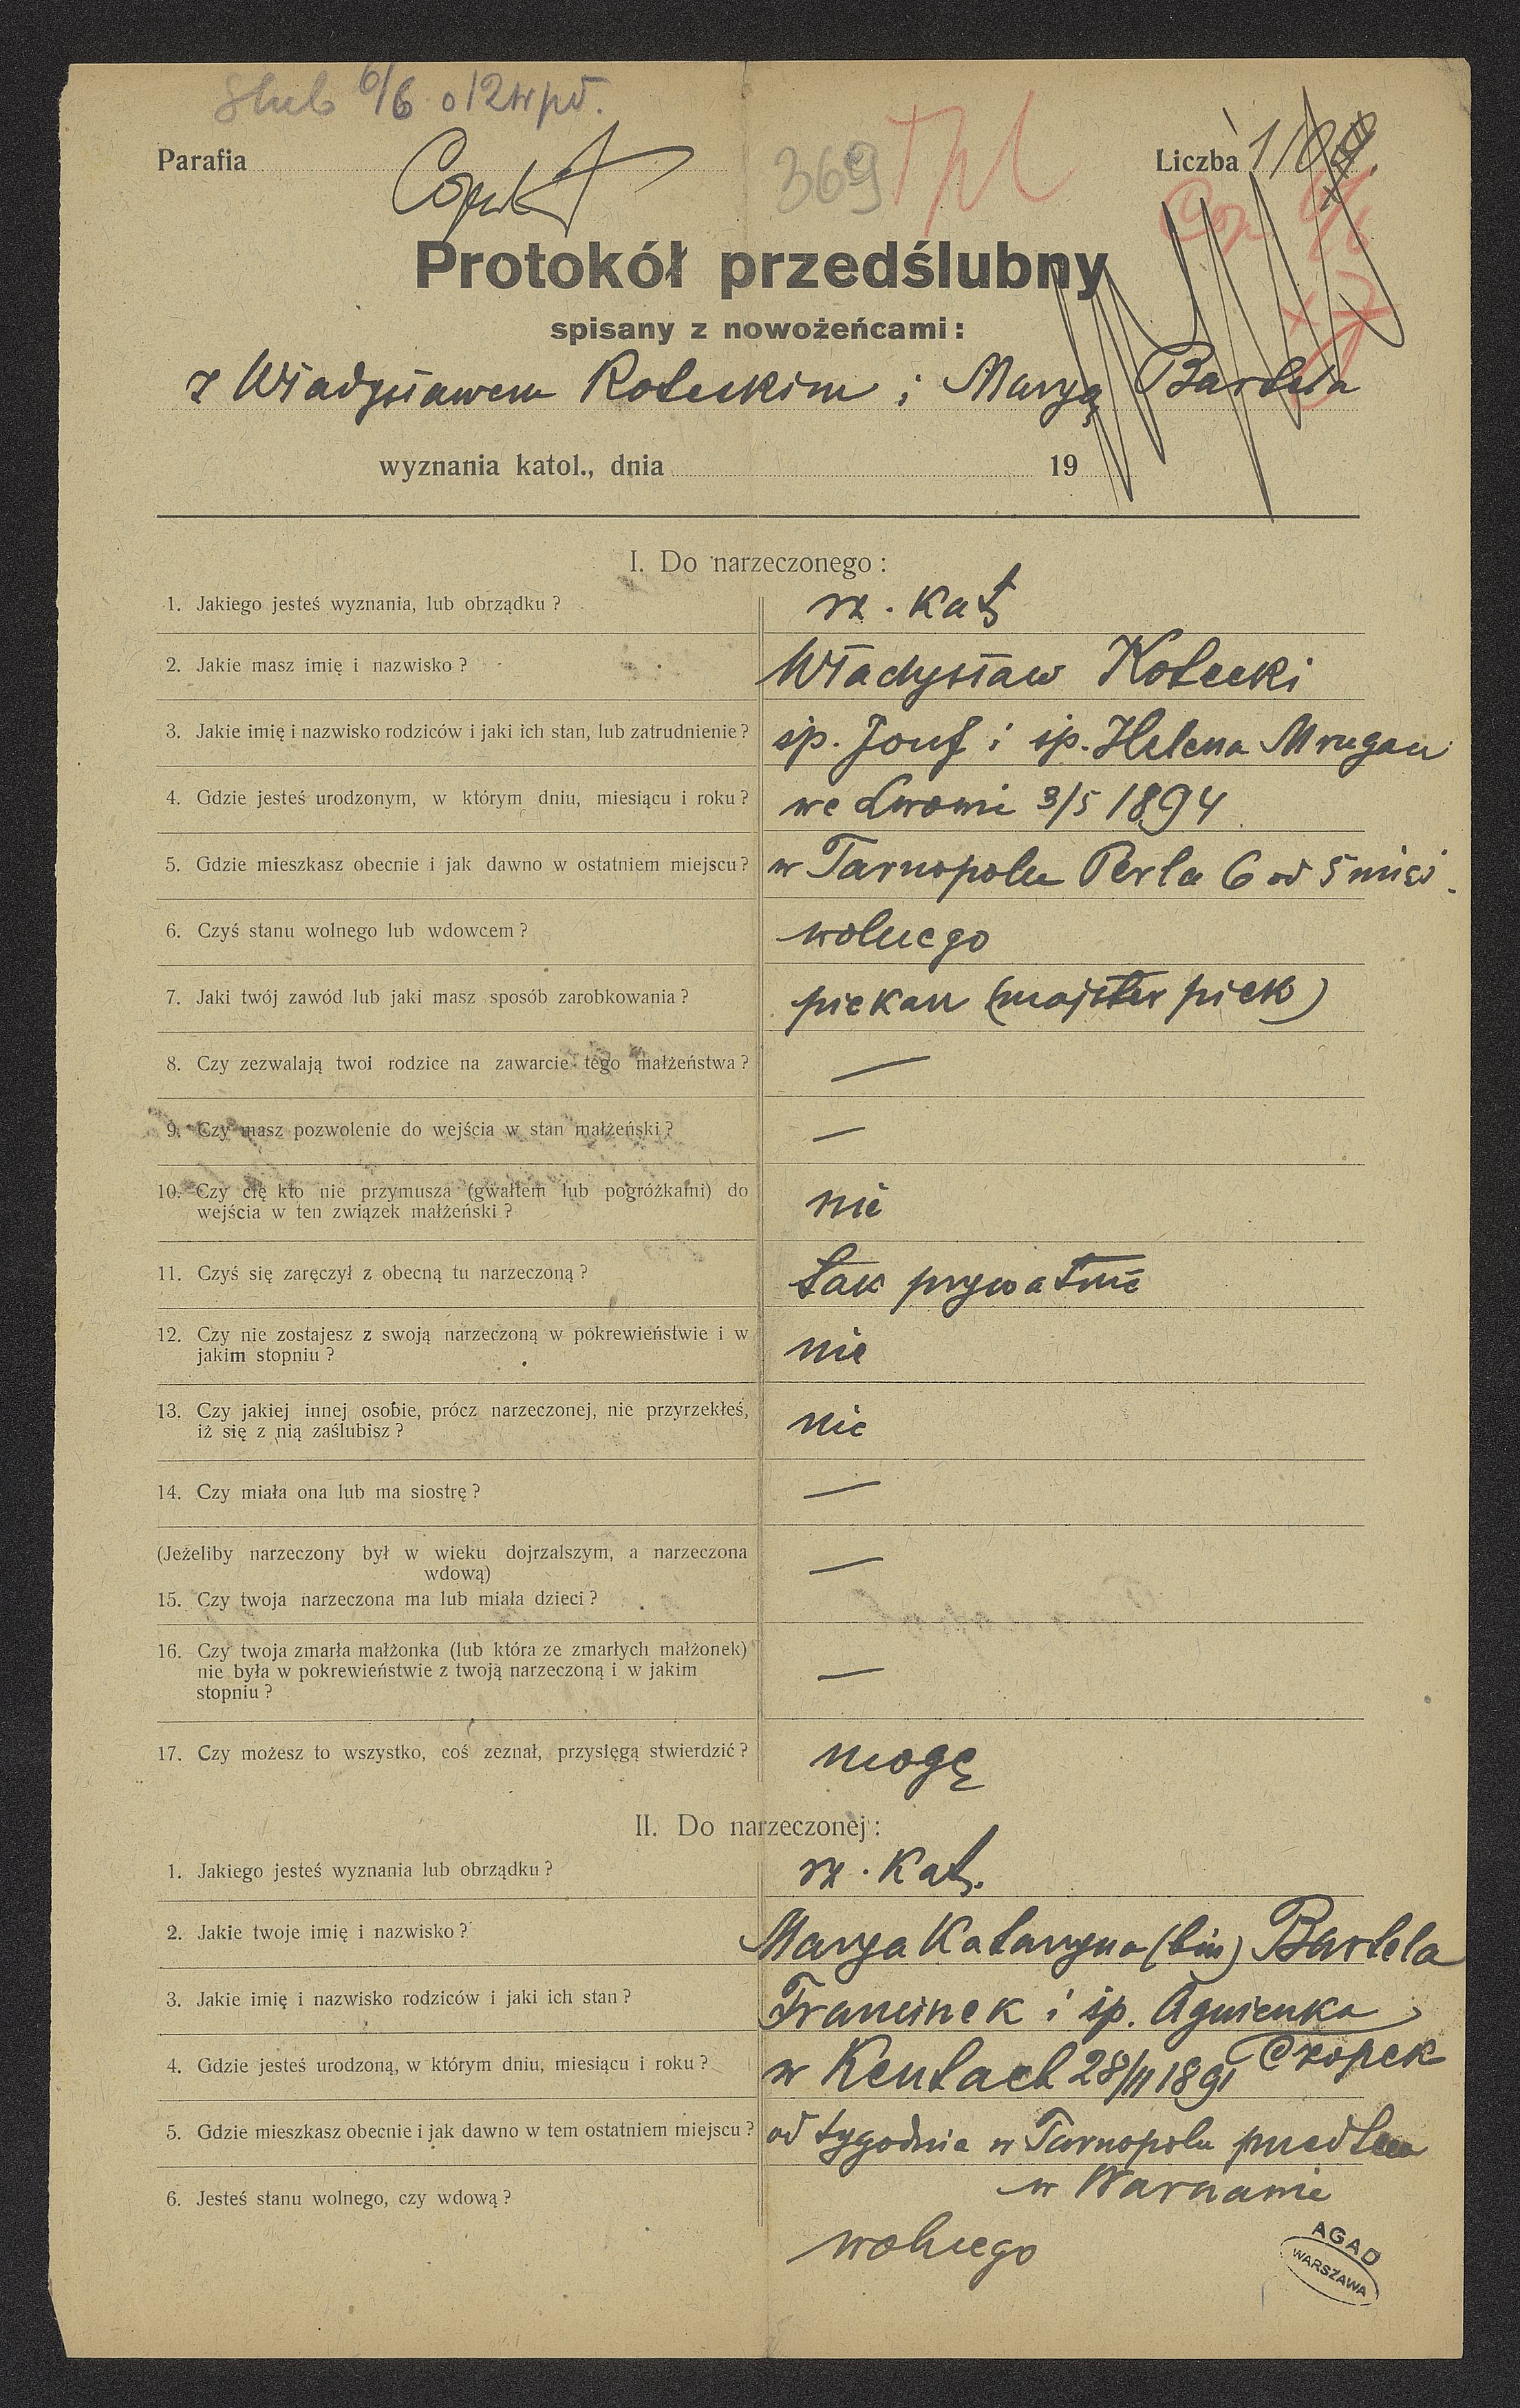 Ślub 6/6 o 12 w pd.
Parafia
369
Liczba
Cop.
Protokół przedślubny
spisany z nowożeńcami:
z Władysławem Koteckim i Maryą Bartela
wyznania katol., dnia 19
I. Do narzeczonego:
1. Jakiego jesteś wyznania, lub obrządku? rz. kat.
2. Jakie masz imię i nazwisko? Władysław Kotecki
3. Jakie imię i nazwisko rodziców i jaki ich stan, lub zatrudnienie? śp. Józef i śp. Helena Mrugacz
4. Gdzie jesteś urodzonym, w którym dniu, miesiącu i roku? we Lwowie 3/5 1894
5. Gdzie mieszkasz obecnie i jak dawno w ostatniem miejscu? w Tarnopolu Perla 6 od 5 mies.
6. Czyś stanu wolnego lub wdowcem? wolnego
7. Jaki twój zawód lub jaki masz sposób zarobkowania? piekarz (majster piek)
8. Czy zezwalają twoi rodzice na zawarcie tego małżeństwa? —
9. Czy masz pozwolenie do wejścia w stan małżeński? —
10. Czy cię kto nie przymusza (gwałtem lub pogróżkami) do
wejścia w ten związek małżeński? nie
11. Czyś się zaręczył z obecną tu narzeczoną? tak prywatnie
12. Czy nie zostajesz z swoją narzeczoną w pokrewieństwie i w
jakim stopniu? nie
13. Czy jakiej innej osobie, prócz narzeczonej, nie przyrzekłeś,
iż się z nią zaślubisz? nie
14. Czy miała ona lub ma siostrę? —
(Jeżeliby narzeczony był w wieku dojrzalszym, a narzeczona
wdową) —
15. Czy twoja narzeczona ma lub miała dzieci?
16. Czy twoja zmarła małżonka (lub która ze zmarłych małżonek)
nie była w pokrewieństwie z twoją narzeczoną i w jakim
stopniu? —
17. Czy możesz to wszystko, coś zeznał, przysięgą stwierdzić? mogę
II. Do narzeczonej:
1. Jakiego jesteś wyznania lub obrządku? rz. kat.
2. Jakie twoje imię i nazwisko? Marya Kataryna (bin) Bartela
3. Jakie imię i nazwisko rodziców i jaki ich stan? Franciszek i śp. Agnieszka
Czopek
4. Gdzie jesteś urodzoną, w którym dniu, miesiącu i roku? w Kentach 28/11 1891
5. Gdzie mieszkasz obecnie i jak dawno w tem ostatniem miejscu? od tygodnia w Tarnopolu przedtem
w Warszawie
6. Jesteś stanu wolnego, czy wdową?
wolnego
AGAD
WARSZAWA